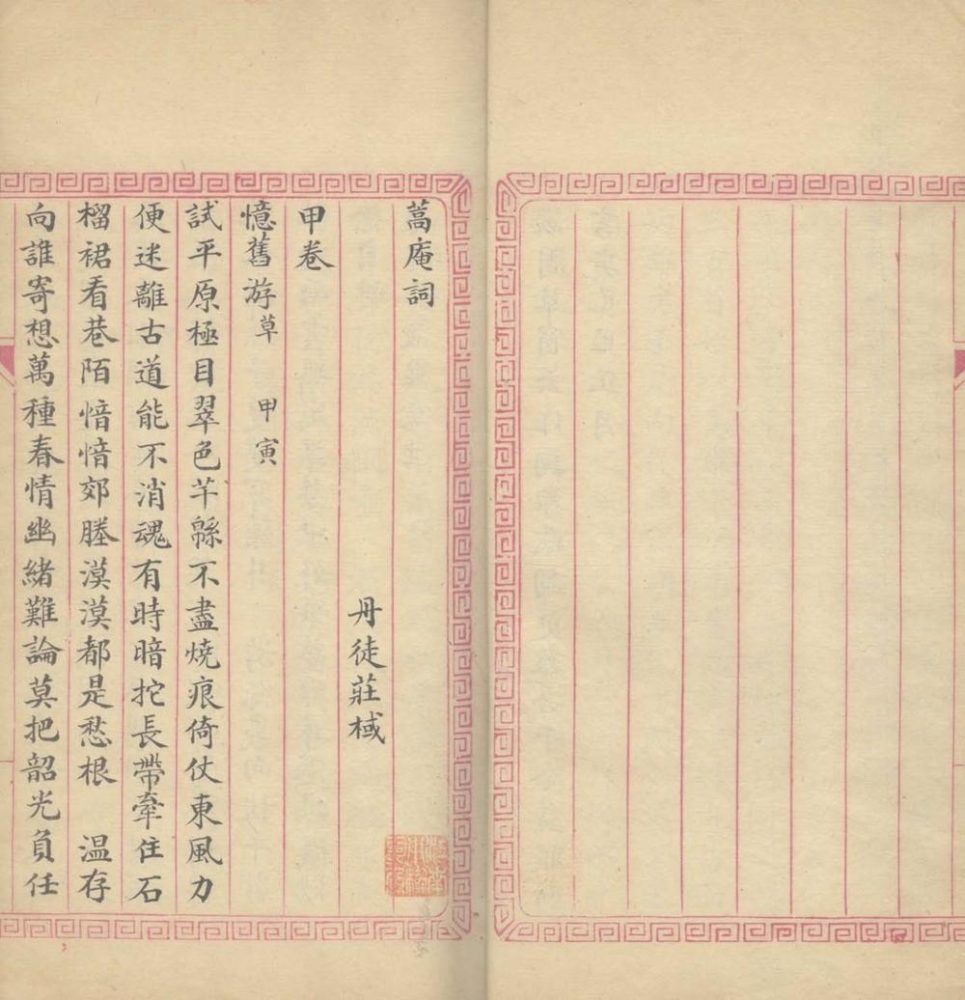 蒿庵詞
丹徒莊棫
甲卷
憶舊游草 甲寅
試平原極目翠色芊緜不盡燒痕倚仗東風力
便迷離古道能不消魂有時暗拕長帶牽住石
榴裙看巷陌愔愔郊塍漠漠都是愁根 温存
向誰寄想萬種春情幽緒難論莫把韶光負任